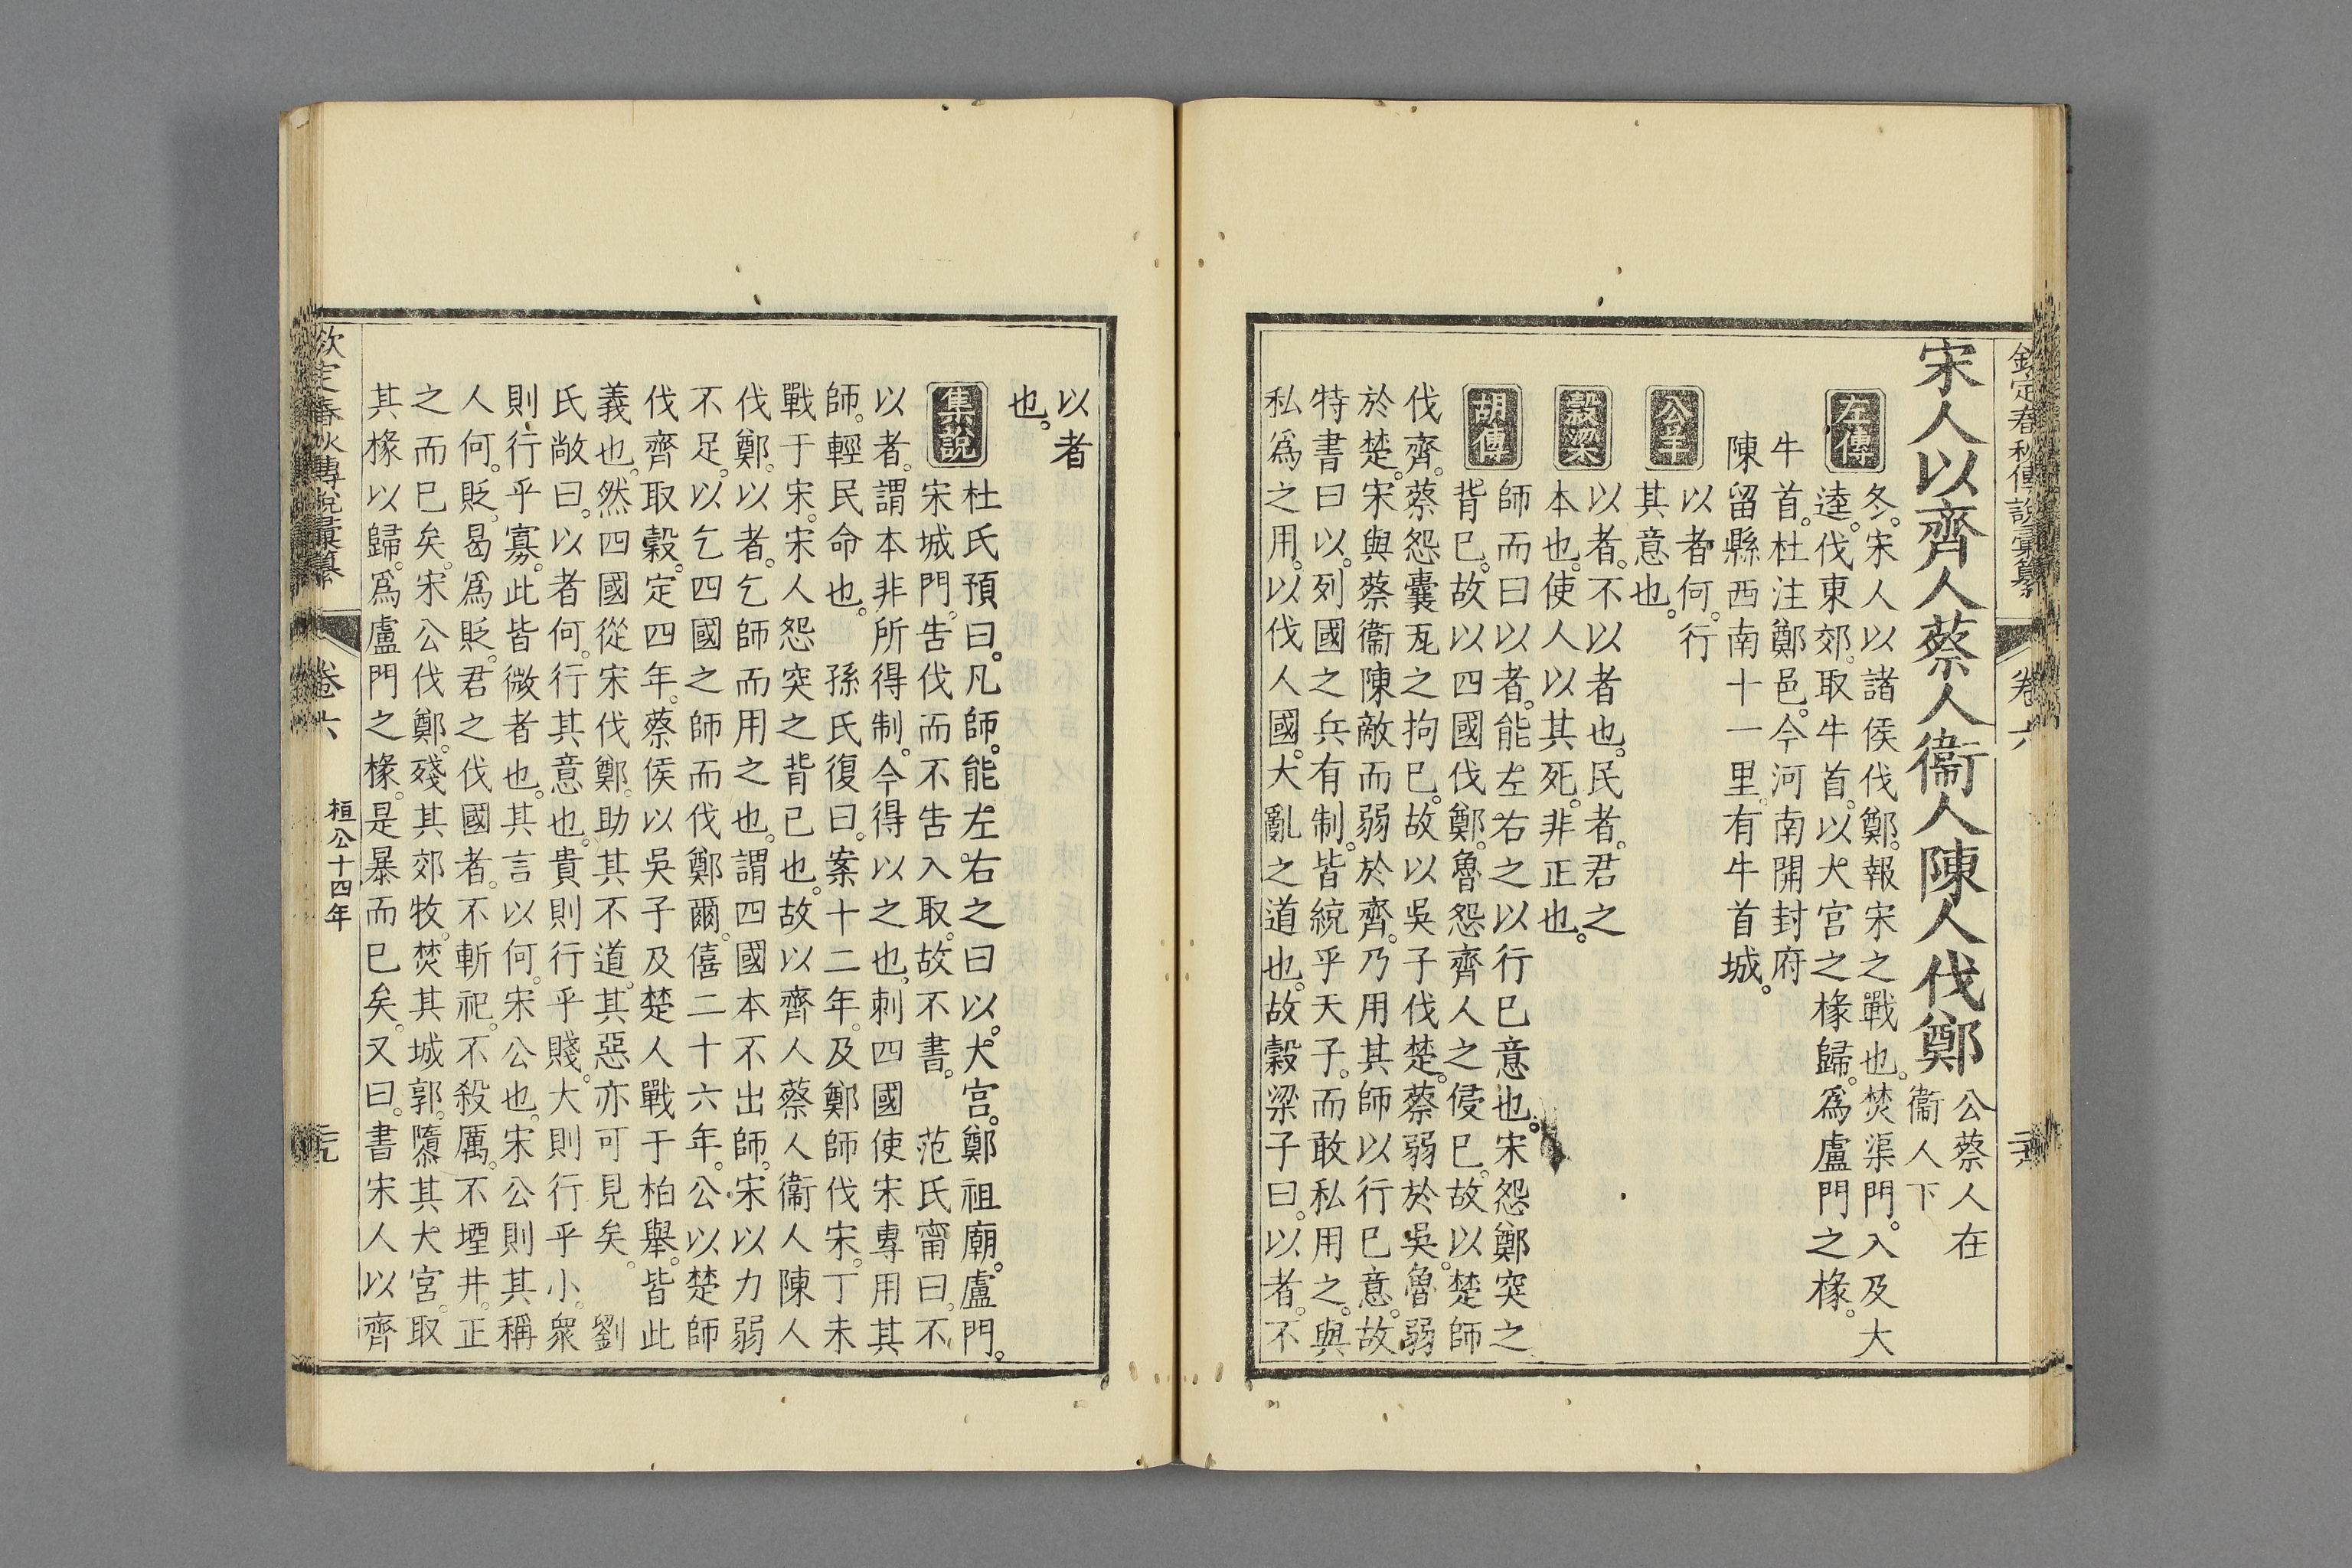 欽定春秋傳說彙纂 卷六
宋人以齊人蔡人衞人陳人伐鄭 公蔡人在
衞人下
左傳 冬。宋人以諸侯伐鄭。報宋之戰也。焚渠門。入及大
逵。伐東郊。取牛首。以大宮之椽歸。爲盧門之椽。
牛首。杜注鄭邑。今河南開封府
陳留縣西南十一里。有牛首城。
公羊 以者何。行
其意也。
穀梁 以者。不以者也。民者。君之
本也。使人以其死。非正也。
胡傳 師而曰以者。能左右之以行已意也。宋怨鄭突之
背已。故以四國伐鄭。魯怨齊人之侵已。故以楚師
伐齊。蔡怨囊瓦之拘已。故以吳子伐楚。蔡弱於吳。魯弱
於楚。宋與蔡衞陳敵而弱於齊。乃用其師以行已意。故
特書曰以。列國之兵有制。皆統乎天子。而敢私用之。與
私爲之用。以伐人國。大亂之道也。故穀梁子曰。以者。不
以者
也。
集說 杜氏預曰。凡師。能左右之曰以。大宮。鄭祖廟。盧門。
宋城門。告伐而不告入取。故不書。 范氏甯曰。不
以者。謂本非所得制。今得以之也。刺四國使宋專用其
師。輕民命也。 孫氏復曰。案十二年。及鄭師伐宋。丁未
戰于宋。宋人怨突之背已也。故以齊人蔡人衞人陳人
伐鄭。以者。乞師而用之也。謂四國本不出師。宋以力弱
不足。以乞四國之師而伐鄭爾。僖二十六年。公以楚師
伐齊取穀。定四年。蔡侯以吳子及楚人戰于柏舉。皆此
義也。然四國從宋伐鄭。助其不道。其惡亦可見矣。 劉
氏敞曰。以者何。行其意也。貴則行乎賤。大則行乎小。衆
則行乎寡。此皆微者也。其言以何。宋公也。宋公則其稱
人何。貶。曷爲貶。君之伐國者。不斬祀。不殺厲。不堙井。正
之而已矣。宋公伐鄭。殘其郊牧。焚其城郭。隳其大宮。取
其椽以歸。爲盧門之椽。是暴而已矣。又曰。書宋人以齊
欽定春秋傳說彙纂 卷六 桓公十四年